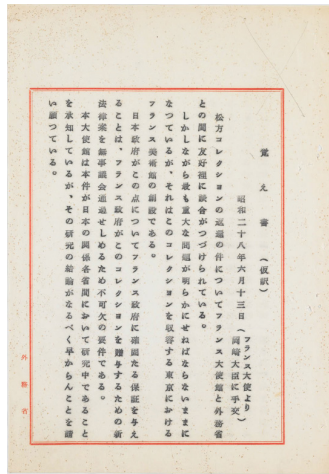 覚え書　（仮訳）
昭和二十八年六月十三日（フランス大使より
岡崎大臣に手交）
松方コレクションの返還の件についてフランス大使館と外務省
との間に友好裡に談合がつづけられている。
しかしながら最も重大な問題が明らかにせねばならないままに
なつているが、それはこのコレクションを収容する東京における
フランス美術館の創設である。
日本政府がこの点についてフランス政府に確固たる保証を与え
ることは、フランス政府がこのコレクションを贈与するための新
法律案を無事議会通過せしめるため不可欠の要件である。
本大使館は本件が日本の関係各省間において研究中であること
を承知しているが、その研究の結論がなるべく早からんことを請
い願つている。
外務省